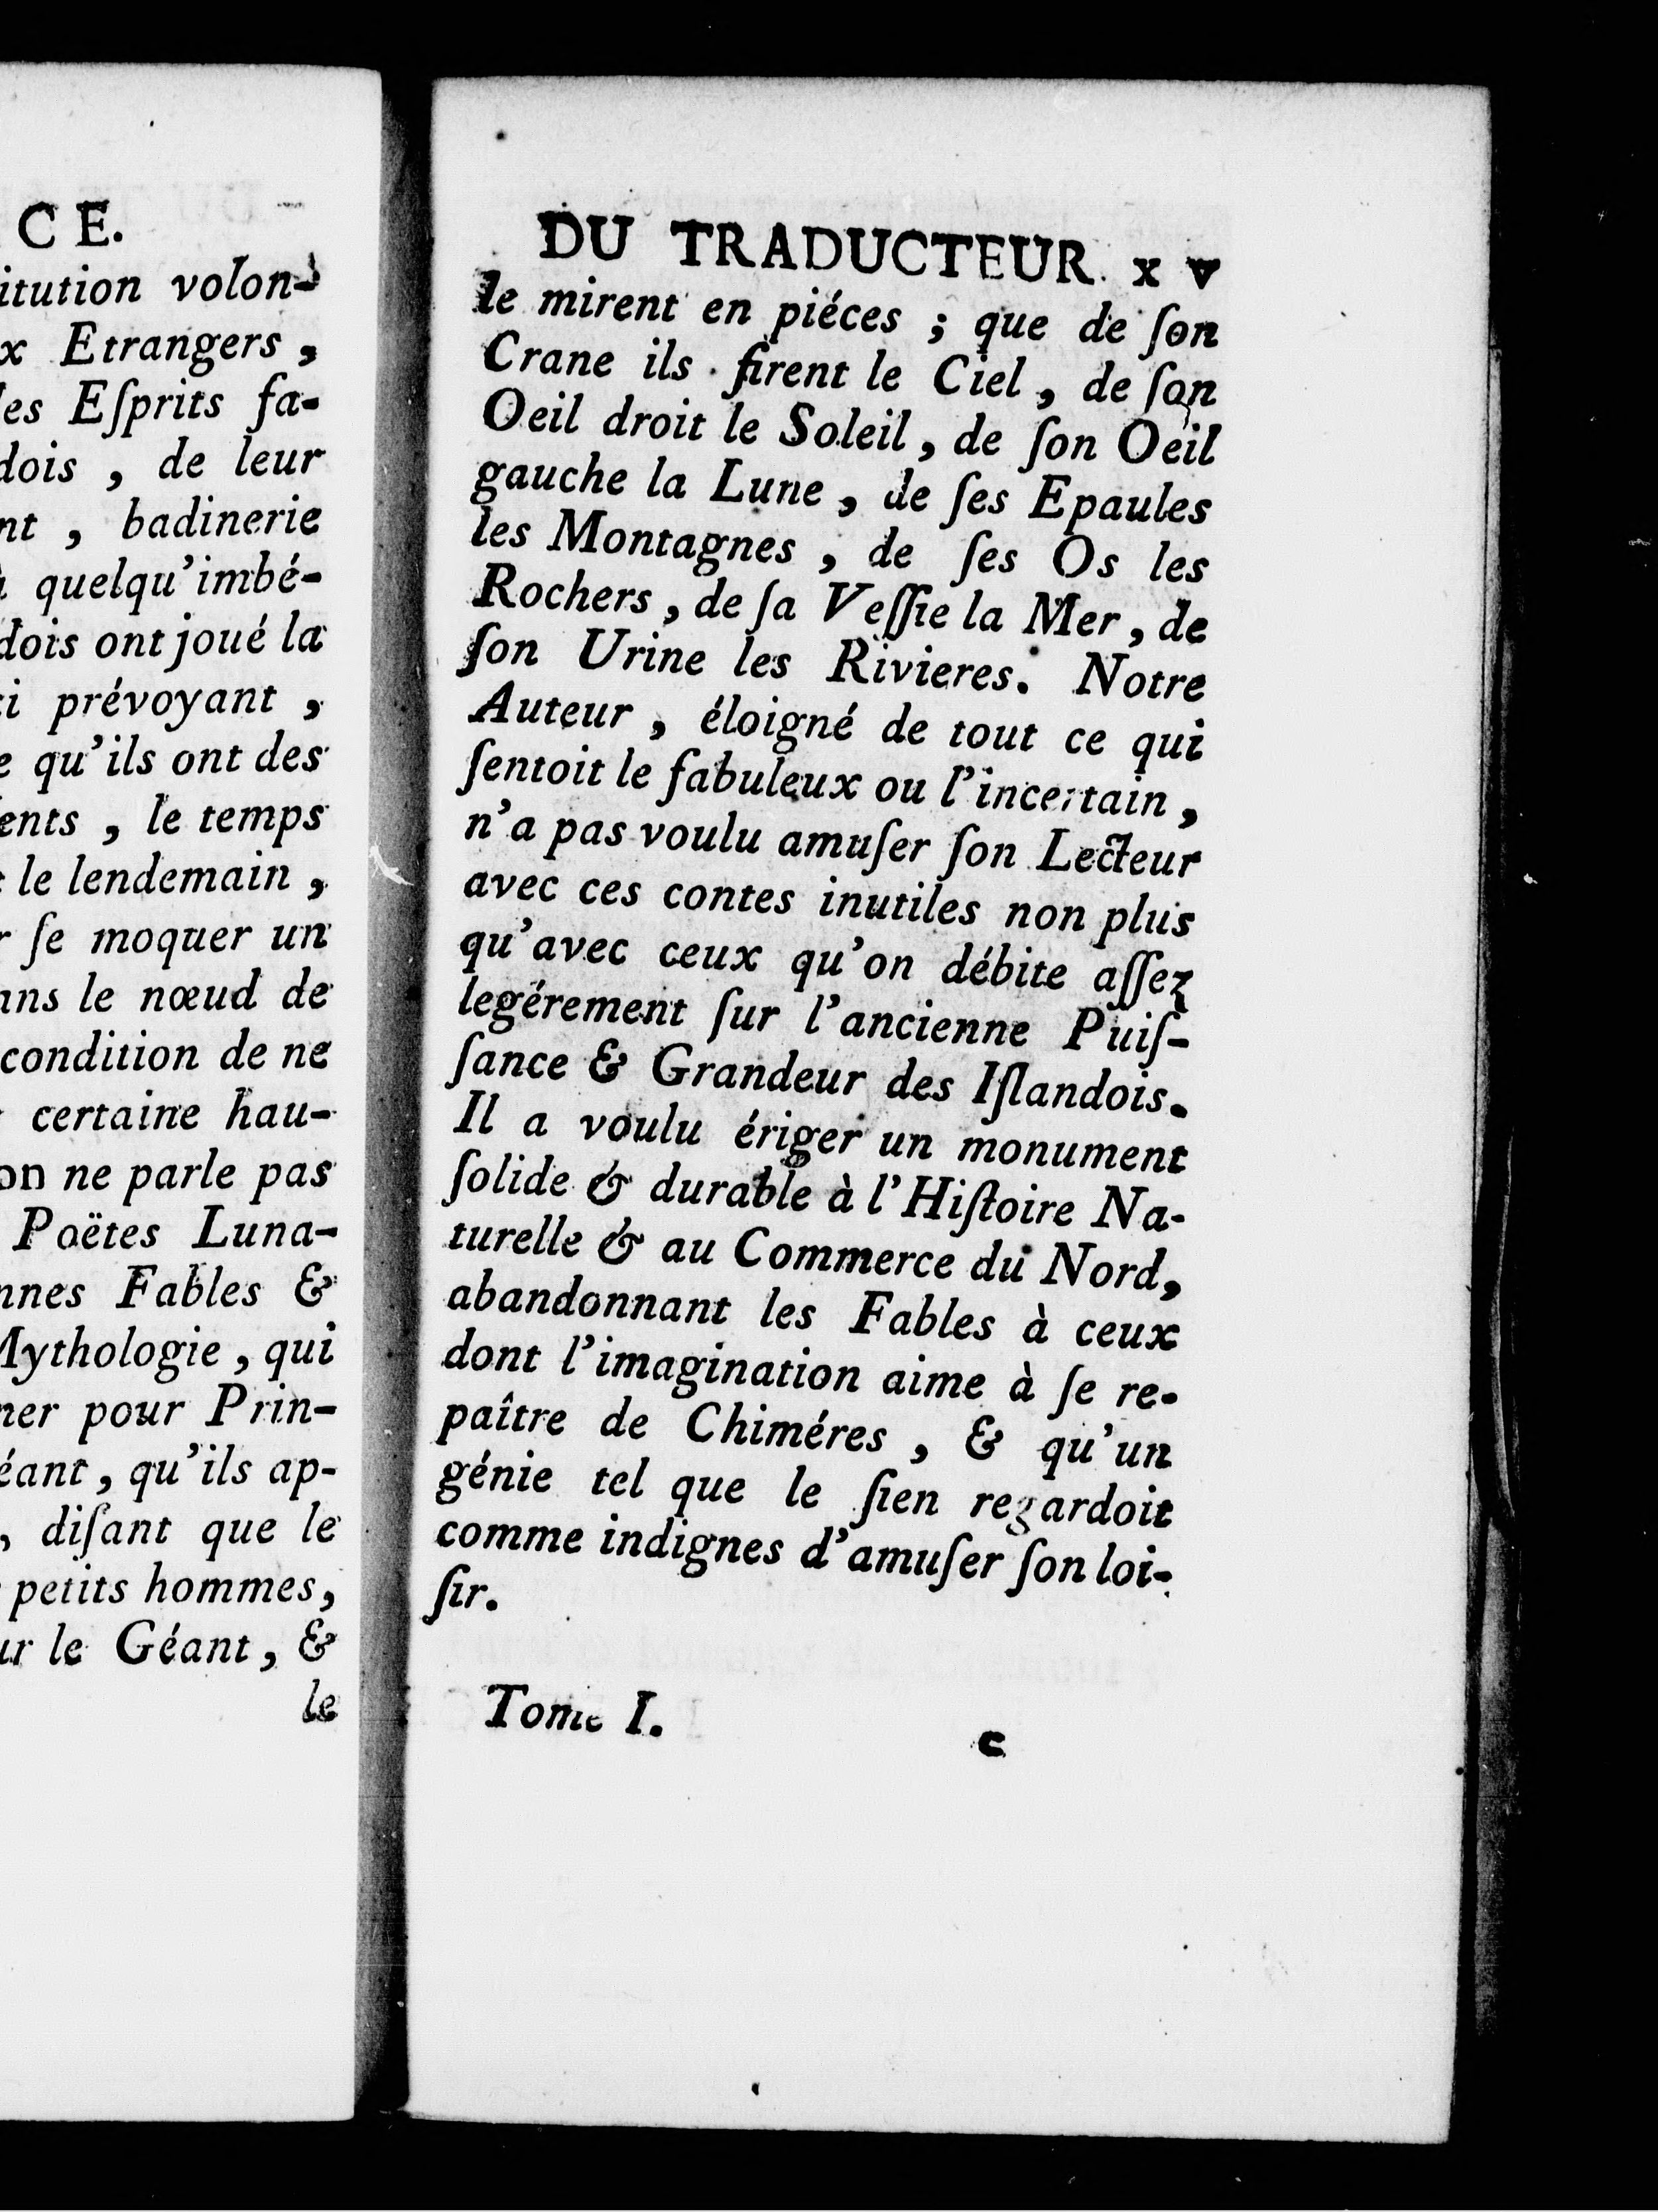 CE.
itution volon-
x Etrangers,
les Eſprits fa-
dois, de leur
nt, badinerie
quelqu'imbé-
dois ont joué la
i prévoyant,
e qu'ils ont des
ents, le temps
le lendemain,
r ſe moquer un
ans le nœud de
condition de ne
certaine hau-
on ne parle pas
Poëtes Luna-
nnes Fables &
Mythologie, qui
ner pour Prin-
éant, qu'ils ap-
, diſant que le
petits hommes,
ur le Géant, &
le
DU TRADUCTEUR. xv
le mirent en piéces ; que de ſon
Crane ils firent le Ciel, de ſon
Oeil droit le Soleil, de ſon Oeil
gauche la Lune, de ſes Epaules
les Montagnes, de ſes Os les
Rochers, de ſa Veſſie la Mer, de
ſon Urine les Rivieres. Notre
Auteur, éloigné de tout ce qui
ſentoit le fabuleux ou l'incertain,
n'a pas voulu amuſer ſon Lecteur
avec ces contes inutiles non plus
qu'avec ceux qu'on débite aſſez
legérement ſur l'ancienne Puiſ-
ſance & Grandeur des Iſlandois.
Il a voulu ériger un monument
ſolide & durable à l'Hiſtoire Na-
turelle & au Commerce du Nord,
abandonnant les Fables à ceux
dont l'imagination aime à ſe re-
paître de Chiméres, & qu'un
génie tel que le ſien regardoit
comme indignes d'amuſer ſon loi-
ſir.
Tome I.
c